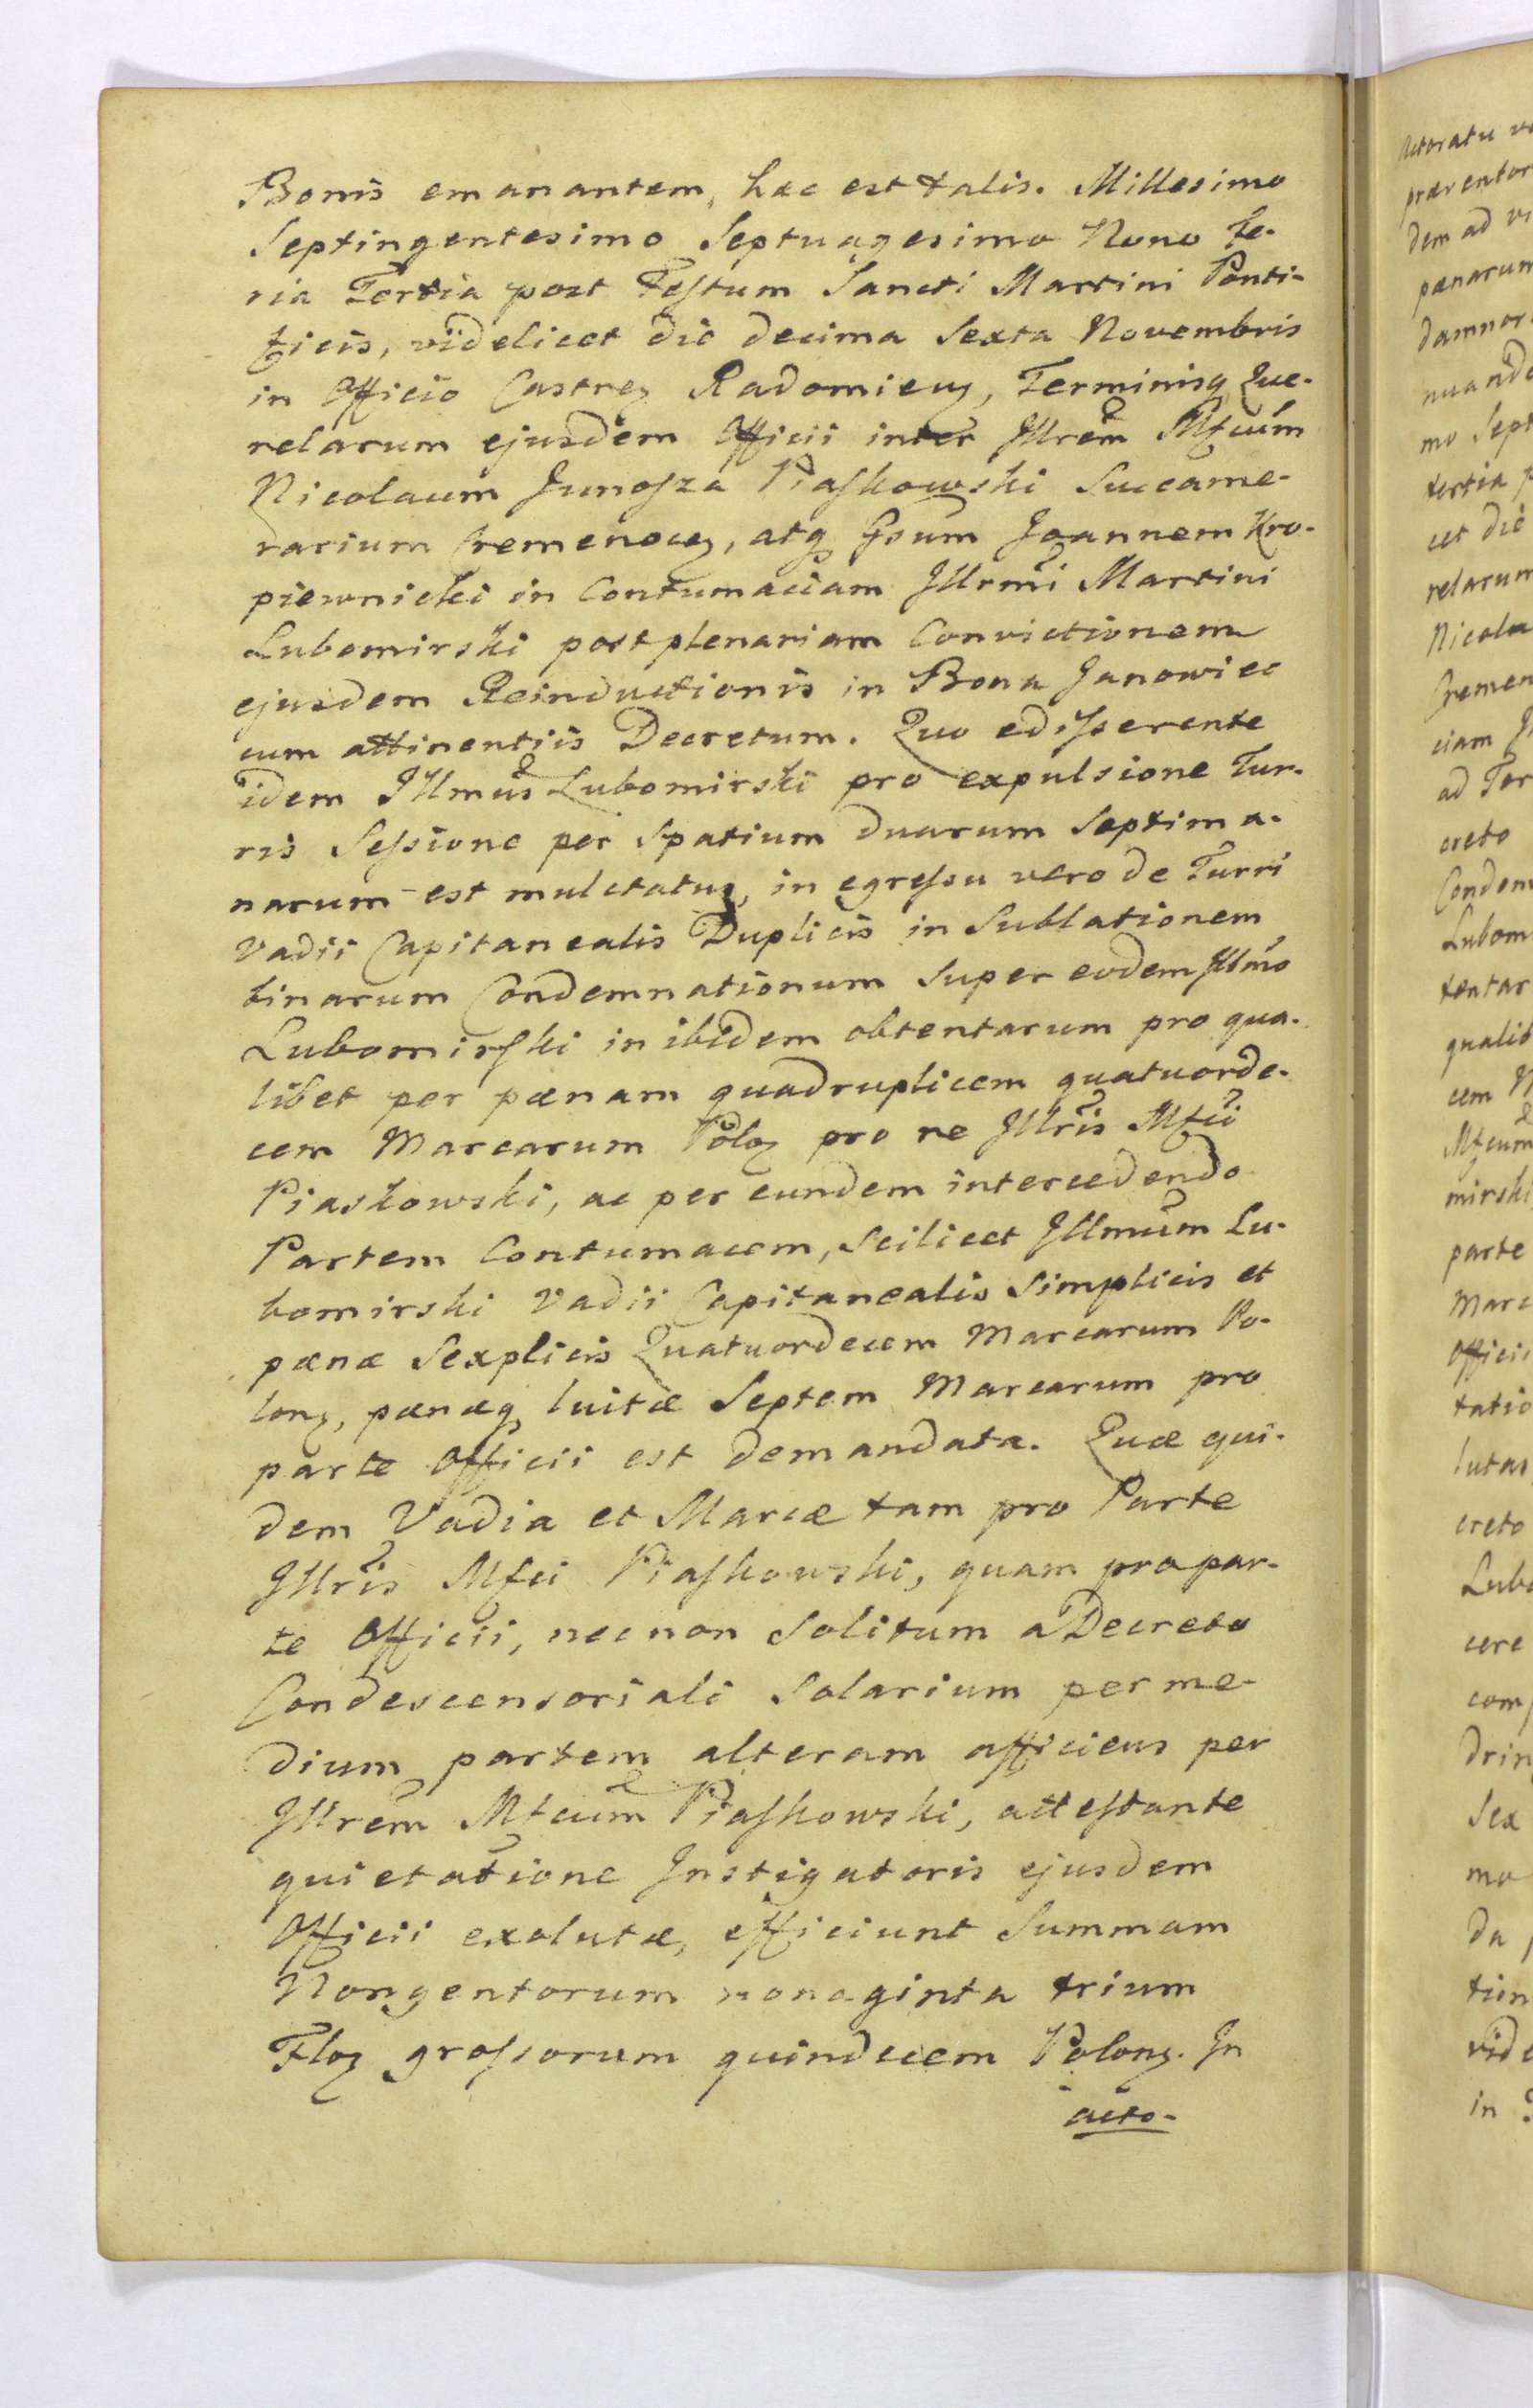 Bonis emanantem, hæc est talis. Millesimo
Septingentesimo Septuagesimo Nono fe-
ria Tertia post Festum Sancti Martini Ponti-
ficis, videlicet die decima Sexta Novembris
in Officio Castrej Radomien, Terminisq Que-
relarum ejusdem Officii inter Illrem Mfcum
Nicolaum Junosza Piaskowski Succame-
rarium Cremenecen, atq Gsum Joannem Kro-
piewnicki in Contumaciam Illrmi Martini
Lubomirski post plenariam Convictionem
ejusdem Reinductionis in Bona Janowiec
cum attinentiis Decretum. Quo edisserente
idem Illmus Lubomirski pro expulsione Tur-
ris Sessione per Spatium duarum Septima-
narum est mulctatus, in egressu vero de Turri
Vadii Capitanealis Duplicis in Sublationem
binarum Condemnationum Super eodem Illmo
Lubomirski in ibidem obtentarum pro qua-
libet per pænam quadruplicem quatuorde-
cem Marcarum Polo pro re Illris Mfci
Piaskowski, ac per eundem intercedendo
Partem Contumacem, Scilicet Illmum Lu-
bomirski Vadii Capitanealis Simplicis et
pænæ Sexplicis Quatuordecem Marcarum Po-
lon, pænæq luitæ Septem Marcarum pro
parte Officii est demandata. Quæ qui-
dem Vadia et Marcæ tam pro Parte
Illris Mfci Piaskowski, quam pro par-
te Officii, nec non Solitum a Decreto
Condescensoriali Salarium per me-
dium partem alteram afficiens per
Illrem Mfcum Piaskowski, attestante
quietatione Instigatoris ejusdem
Officii exolutæ, efficiunt Summam
Nongentorum nonaginta trium
Flo grossorum quindecem Polon. In
acto-
parte
tatio
creto